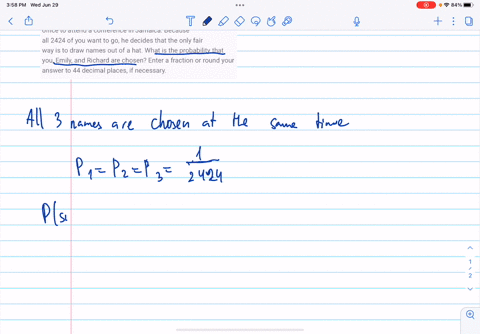 3:58 PM Wed Jun 29
84%
office to attend a conference in Jamaica. Because
all 2424 of you want to go, he decides that the only fair
way is to draw names out of a hat. What is the probability that
you, Emily, and Richard are chosen? Enter a fraction or round your
answer to 44 decimal places, if necessary.
All 3 names are chosen at the same time
P1 = P2 = P3 = 1/2424
P(s
1
2